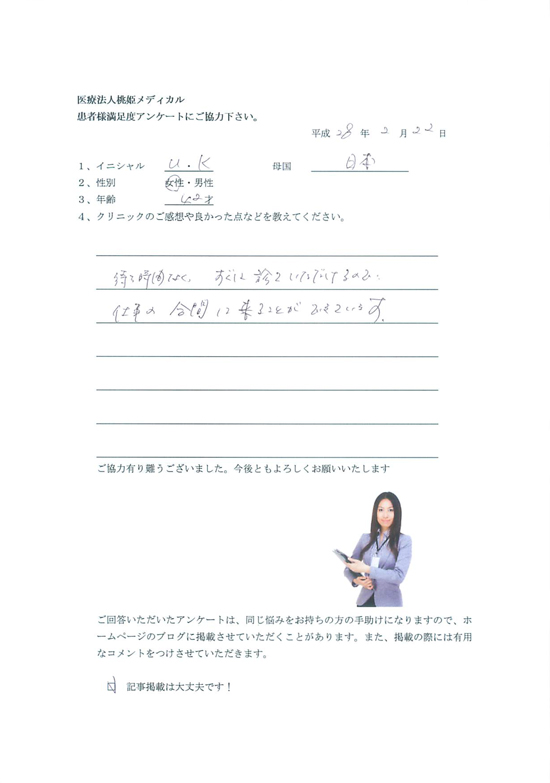 医療法人桃姫メディカル
患者様満足度アンケートにご協力下さい。
平成 28 年 2 月 22 日
1、イニシャル U.K 母国 日本
2、性別 女性・男性
3、年齢 42才
4、クリニックのご感想や良かった点などを教えてください。
待ち時間なく、すぐに診ていただけるので
仕事の合間に来ることができています。
ご協力有り難うございました。今後ともよろしくお願いいたします
ご回答いただいたアンケートは、同じ悩みをお持ちの方の手助けになりますので、ホ
ームページのブログに掲載させていただくことがあります。また、掲載の際には有用
なコメントをつけさせていただきます。
記事掲載は大丈夫です！